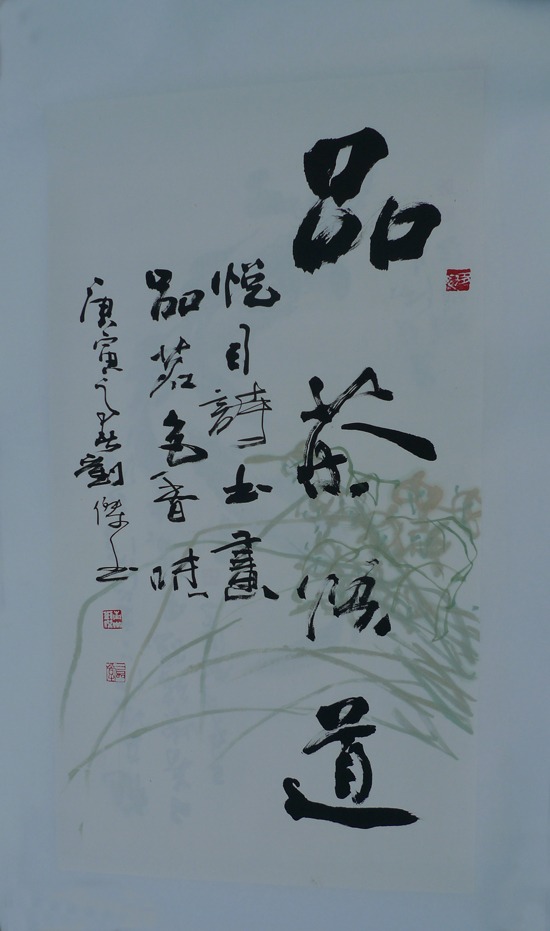 品茶悟道
悦目詩书畫
品茗色香味
庚寅之春劉傑书